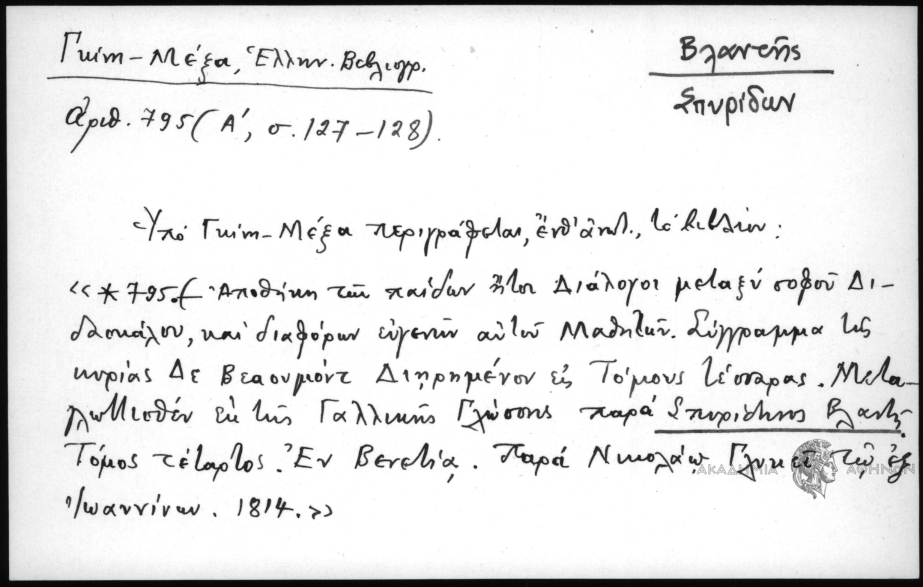 Γκίνη-Μέξα, Ἑλλην. Βιβλιογρ.
Βλαντῆς
Σπυρίδων
ἀριθ. 795 (Α΄, σ. 127-128).
Ὑπὸ Γκίνη-Μέξα περιγράφεται, ἔνθ' ἀνωτ., τὸ βιβλίον:
«*795. Ἀποθήκη τῶν παίδων ἤτοι Διάλογοι μεταξὺ σοφοῦ Δι-
δασκάλου, καὶ διαφόρων εὐγενῶν αὐτοῦ Μαθητῶν. Σύγγραμμα τῆς
κυρίας Δε Βεαουμὸντ Διῃρημένον εἰς Τόμους τέσσαρας. Μετα-
γλωττισθὲν ἐκ τῆς Γαλλικῆς Γλώσσης παρὰ Σπυρίδωνος Βλαντῆ.
Τόμος τέταρτος. Ἐν Βενετίᾳ. Παρὰ Νικολάῳ Γλυκεῖ τῷ ἐξ
Ἰωαννίνων. 1814.»
ΑΚΑΔΗΜΙΑ ΑΘΗΝΩΝ